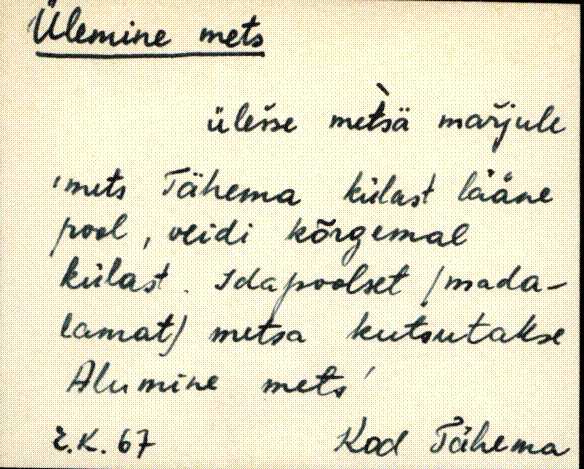 Ülemine mets
ülesse metsä marjule
'mets Tähema külast lääne
pool, veidi kõrgemal
külast. Idapoolset /mada-
lamat) metsa kutsutakse
Alumine mets'
E.K. 67 Kod Tähema